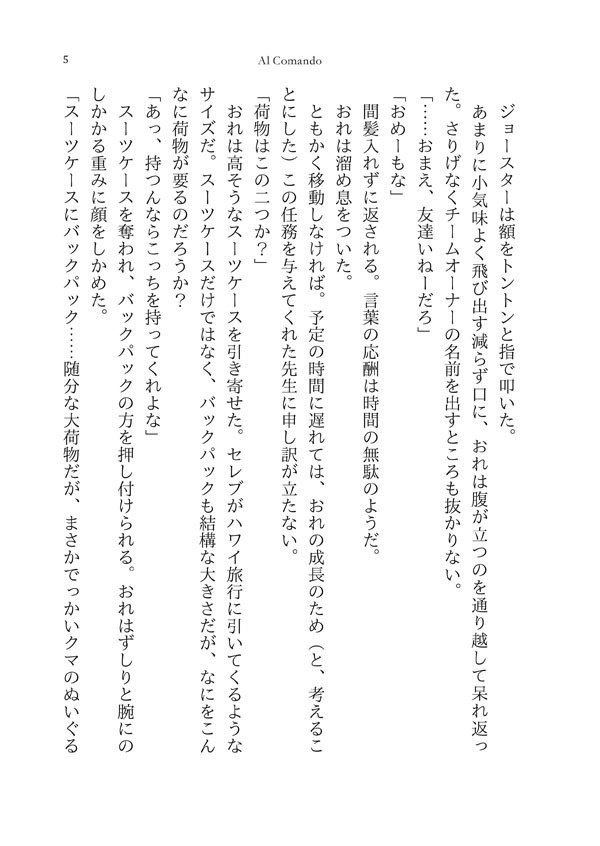 5
Al Comando
ジョースターは額をトントンと指で叩いた。
あまりに小気味よく飛び出す減らず口に、おれは腹が立つのを通り越して呆れ返っ
た。さりげなくチームオーナーの名前を出すところも抜かりない。
「……おまえ、友達いねーだろ」
「おめーもな」
間髪入れずに返される。言葉の応酬は時間の無駄のようだ。
おれは溜め息をついた。
ともかく移動しなければ。予定の時間に遅れては、おれの成長のため（と、考えるこ
とにした）この任務を与えてくれた先生に申し訳が立たない。
「荷物はこの二つか？」
おれは高そうなスーツケースを引き寄せた。セレブがハワイ旅行に引いてくるような
サイズだ。スーツケースだけではなく、バックパックも結構な大きさだが、なにをこん
なに荷物が要るのだろうか？
「あっ、持つんならこっちを持ってくれよな」
スーツケースを奪われ、バックパックの方を押し付けられる。おれはずしりと腕にの
しかかる重みに顔をしかめた。
「スーツケースにバックパック……随分な大荷物だが、まさかでっかいクマのぬいぐる